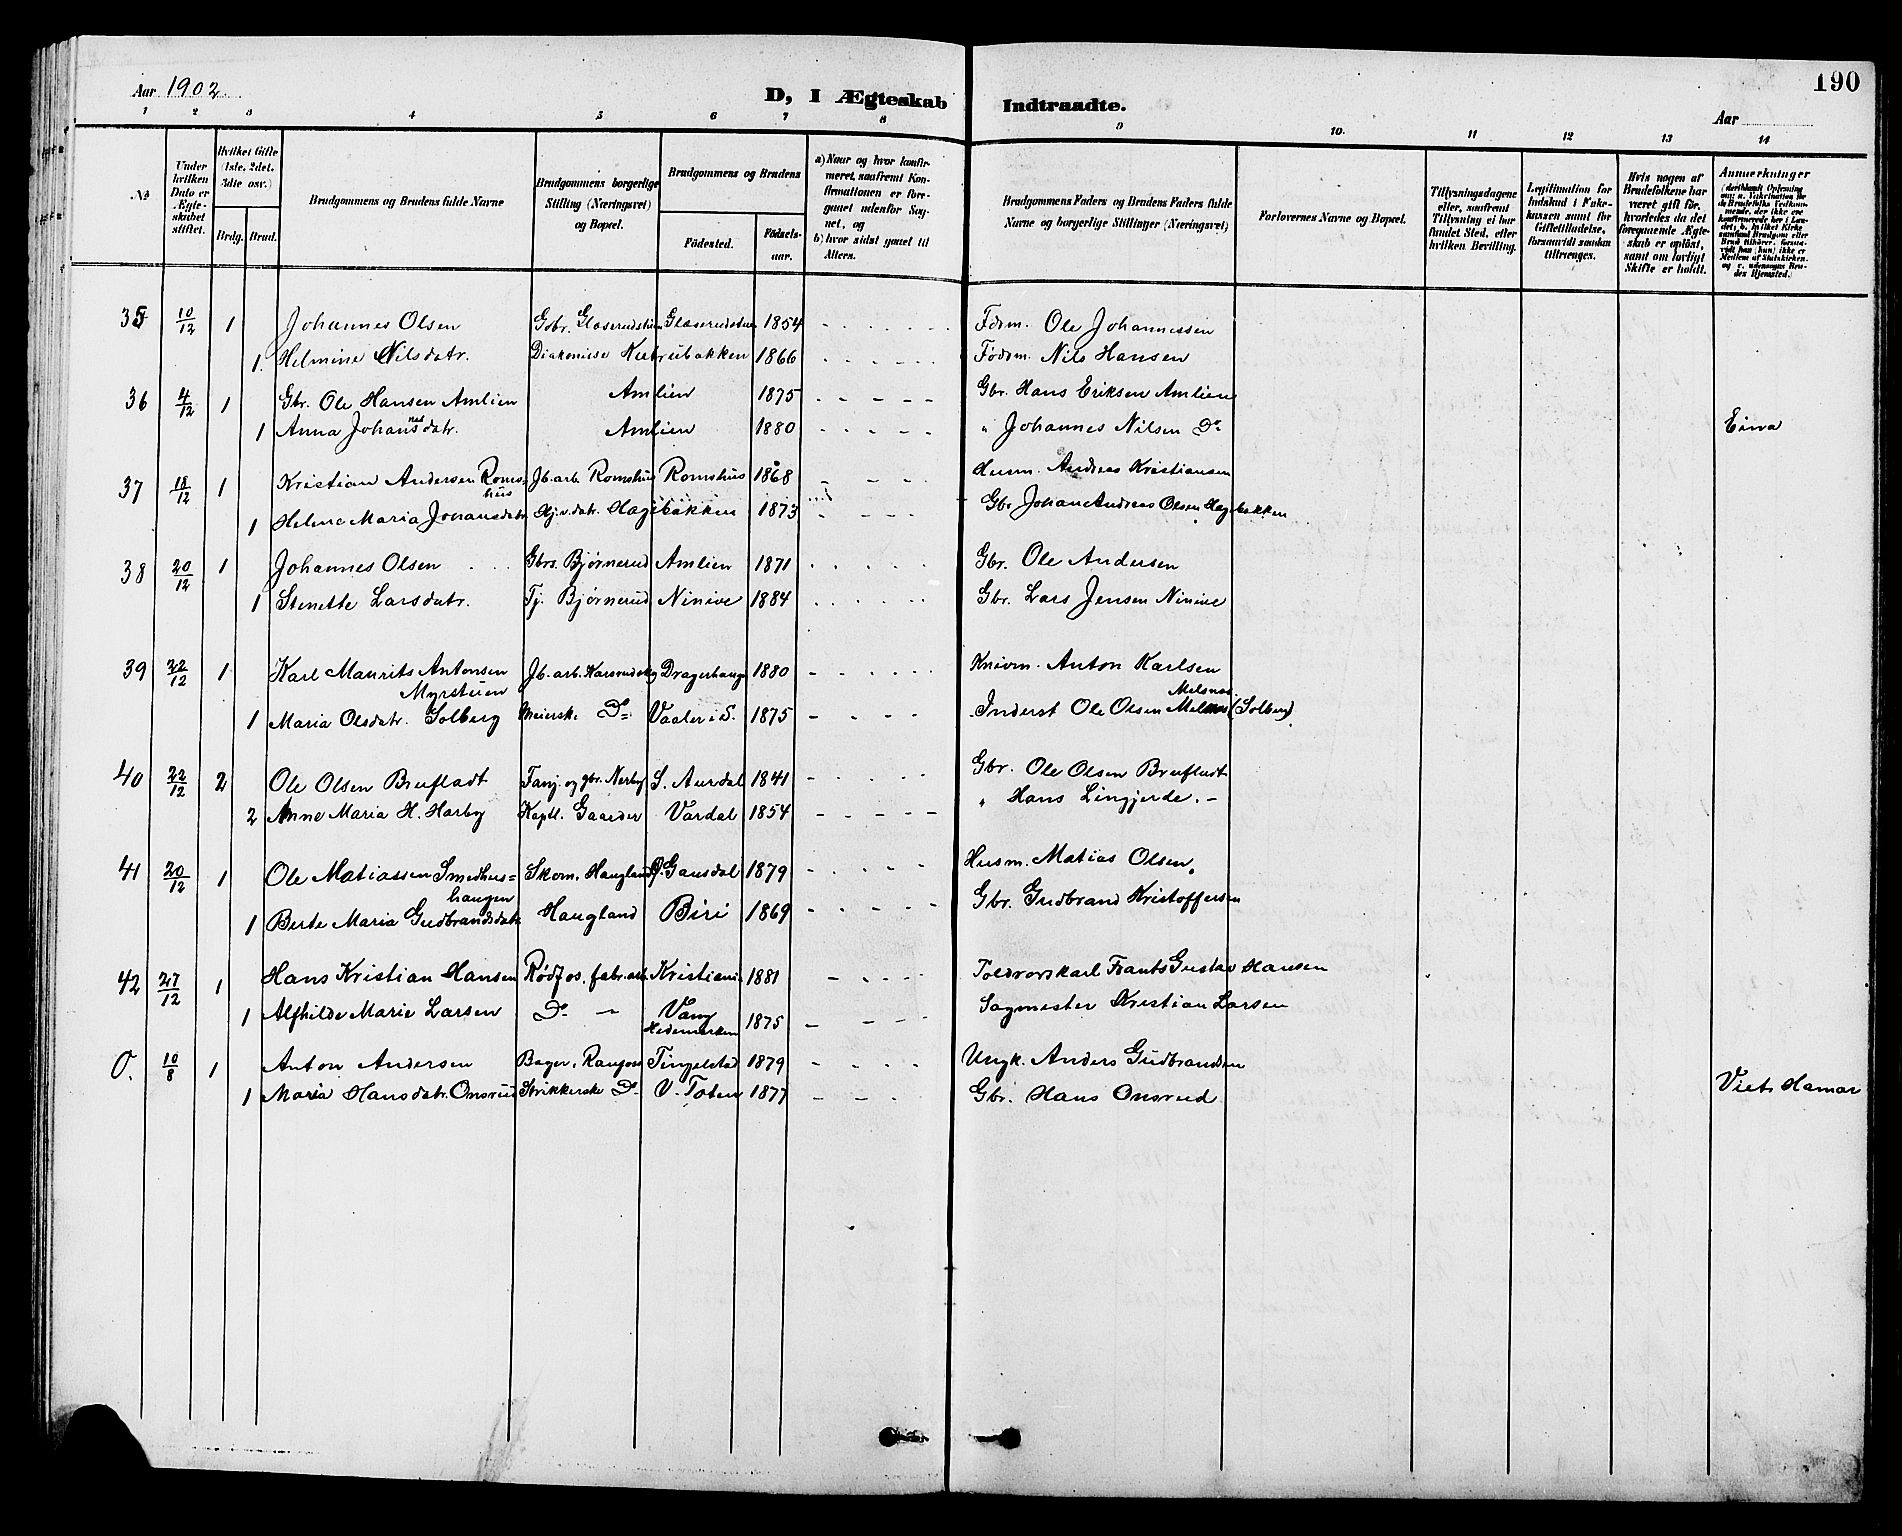 Aar 1902. D, I Ægteskab Indtraadte. Aar 190
1 2 3 4 5 6 7 8 9 10. 11 12 13 14
№ Under hvilken Dato er Ægteskabet stiftet. Hvilket Gifte (1ste, 2det, 3die osv.) Brdg. Brud. Brudgommens og Brudens fulde Navne Brudgommens borgerlige Stilling (Næringsvei) og Bopæl. Brudgommens og Brudens Fødested. Fødselsaar. a) Naar og hvor konfirmeret, saafremt Konfirmationen er foregaaet udenfor Sognet, og b) hvor sidst gaaet til Alters. Brudgommens Faders og Brudens Faders fulde Navne og borgerlige Stillinger (Næringsvei) Forlovernes Navne og Bopæl. Tillysningsdagene eller, saafremt Tillysning ei har fundet Sted, efter hvilken Bevilling. Legitimation for Indskud i Enkekassen samt for Giftetilladelse, forsaavidt saadan tiltrænges. Hvis nogen af Brudefolkene har været gift før, hvorledes da det foregaaende Ægteskab er opløst, samt om lovligt Skifte er holdt. Anmerkninger
35 10/12 1 Johannes Olsen Gbr. Glaserudstuen Glaserudstuen 1854 Fdrm. Ole Johannessen
1. Helmine Nilsdatr. Diakonisse Kutrubakken 1866 Fødrm. Nils Hansen
36 4/12 1 Gbr. Ole Hansen Amlien Amlien 1875 Gbr. Hans Eriksen Amlien
1 Anna Johannesdatr. Amlien 1880 " Johannes Nilsen Do Eina
37 18/12 1 Kristian Andersen Romshus Jb. arb. Romshus Romshus 1868 Husm. Andreas Kristiansen
1 Helene Maria Johansdatr. Hj.v.datr. Hagebakken 1873 Gbr Johan Andreas Olsen Hagebakken
38 20/12 1 Johannes Olsen Gbrs. Bjørnerud Amlien 1871 Gbr. Ole Andersen
1 Stenette Larsdatr. Tj. Bjørnerud Ninive 1884 Gbr. Lars Jensen Ninive
39 22/12 1 Karl Maurits Antonsen Jb. arb. Dragerhaug 1880 Knivm. Anton Karlsen
Myrstuen
1 Maria Olsdatr. Solberg Meierske Do Vaaler i S. 1875 Inderst Ole Olsen Melsnes (Solberg)
40 22/12 2 Ole Olsen Brufladt Fanj. og gbr. Nerby S. Aurdal 1841 Gbr. Ole Olsen Brufladt
2 Anne Maria H. Harby Kaptl. Gaarder Vardal 1854 " Hans Lingjerde. –
41 20/12 1 Ole Matiassen Smedhus= Skom. Haugland Ø. Gausdal 1879 Husm. Matias Olsen
haugen
1 Berte Maria Gudbrandsdatr. Haugland Biri 1869 Gbr. Gudbrand Kristoffersen
42 27/12 1 Hans Kristian Hansen Rødfos. fabr. arb. Kristiania 1881 Toldrorskarl Frants Gustav Hansen
1 Alfhilde Marie Larsen Do – Vang Hedemarken 1875 Sagmester Kristian Larsen
O. 10/8 1 Anton Andersen Bager, Raufoss Tingelstad 1879 Ungk. Anders Gudbrandsen
1 Maria Hansdatr. Onsrud Strikkerske Do V. Toten 1877 Gbr. Hans Onsrud Viet. Hamar